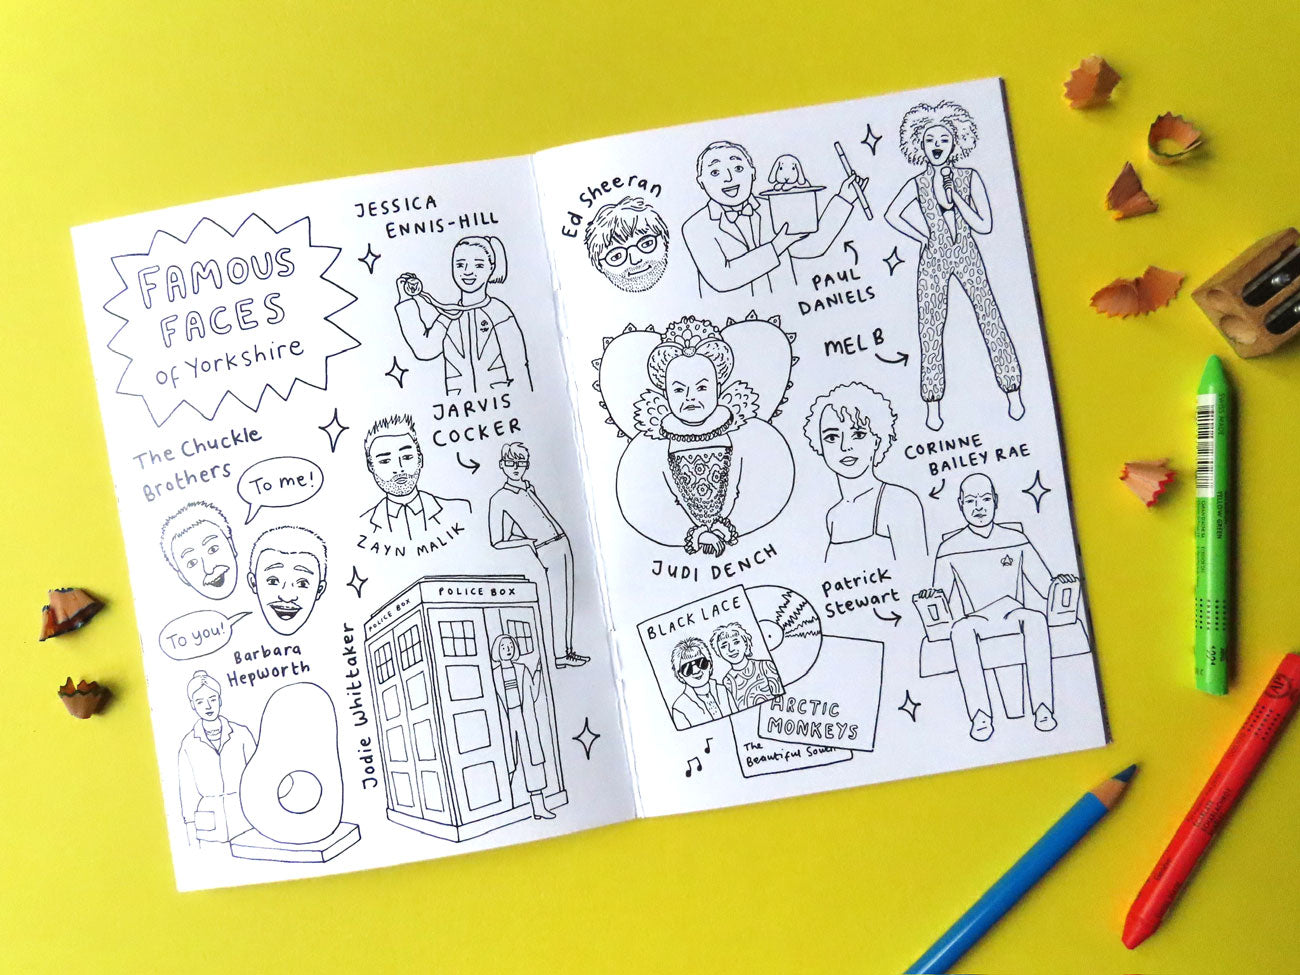 FAMOUS
FACES
of Yorkshire
JESSICA
ENNIS-HILL
The Chuckle
Brothers
To me!
To you!
JARVIS
COCKER
ZAYN MALIK
Barbara
Hepworth
Jodie Whittaker
POLICE BOX
POLICE BOX
Ed Sheeran
PAUL
DANIELS
MEL B
JUDI DENCH
CORINNE
BAILEY RAE
Patrick
Stewart
BLACK LACE
ARCTIC
MONKEYS
The
Beautiful South
SWISS MADE
YELLOW GREEN